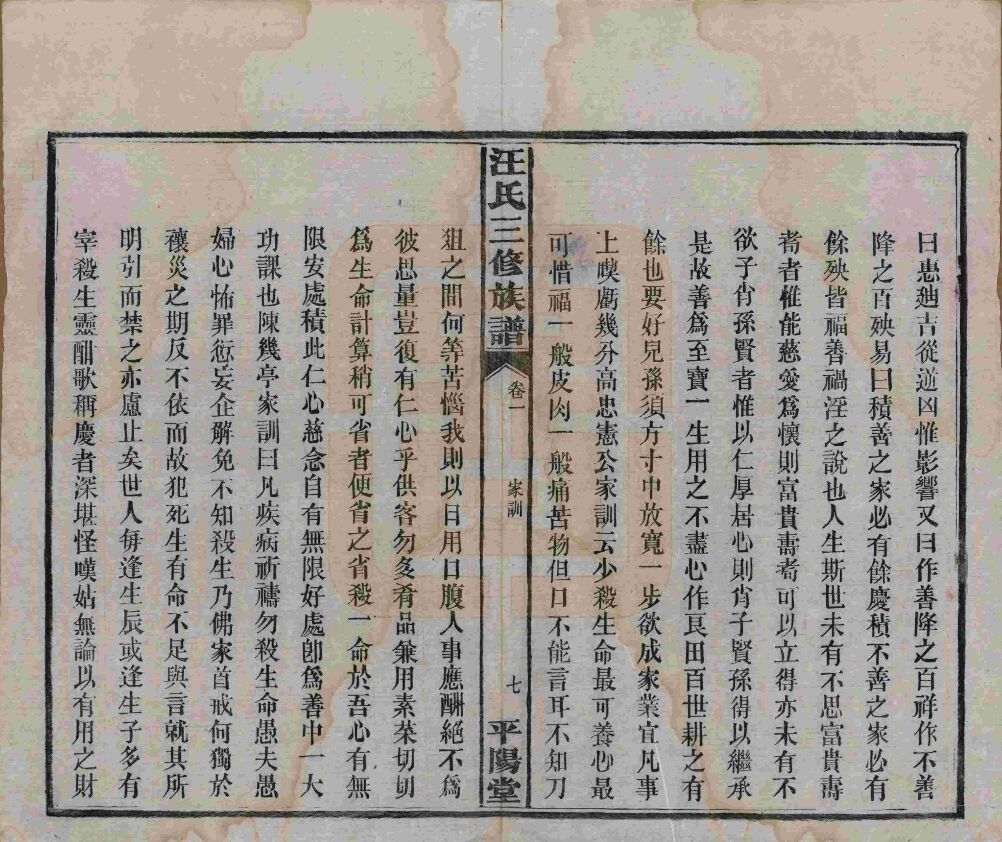 曰惠迪吉從逆凶惟影響又曰作善降之百祥作不善
降之百殃易曰積善之家必有餘慶積不善之家必有
餘殃皆福善禍淫之說也人生斯世未有不思富貴壽
耇者惟能慈愛爲懷則富貴壽耇可以立得亦未有不
欲子肖孫賢者惟以仁厚居心則肖子賢孫得以繼承
是故善爲至寶一生用之不盡心作良田百世耕之有
餘也要好兒孫須方寸中放寬一步欲成家業宜凡事
上喫虧幾分高忠憲公家訓云少殺生命最可養心最
可惜福一般皮肉一般痛苦物但口不能言耳不知刀
汪氏三修族譜
卷一
家訓
七
平陽堂
俎之間何等苦惱我則以日用口腹人事應酬絕不爲
彼思量豈復有仁心乎供客勿多肴品兼用素菜切切
爲生命計算稍可省者便省之省殺一命於吾心有無
限安處積此仁心慈念自有無限好處卽爲善中一大
功課也陳幾亭家訓曰凡疾病祈禱勿殺生命愚夫愚
婦心怖罪愆妄企解免不知殺生乃佛家首戒何獨於
禳災之期反不依而故犯死生有命不足與言就其所
明引而禁之亦慮止矣世人每逢生辰或逢生子多有
宰殺生靈酣歌稱慶者深堪怪嘆姑無論以有用之財